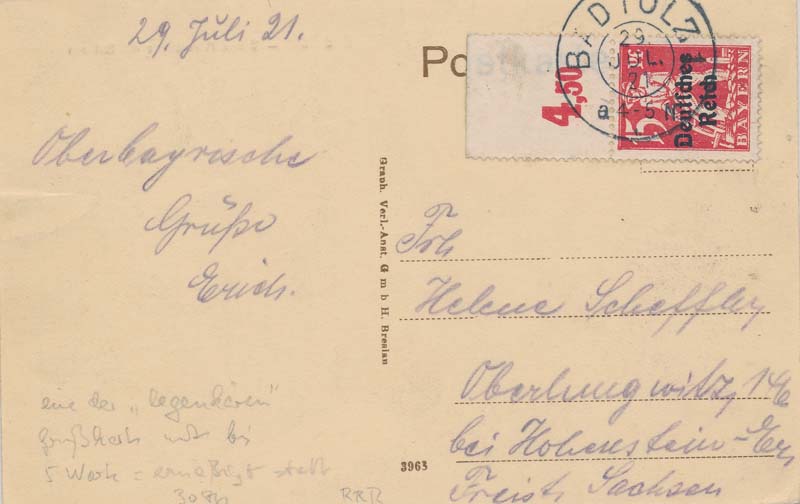 29. Juli 21.
Oberbayrische
Grüße
Erich.
eine der "legendären"
Grußkarte mit bis
5 Worte = ermäßigt statt
30 Pf
RRR
Graph. Verl.-Anst. G m b H. Breslau
3963
Postka
BAD TÖLZ 1
29.
JUL.
21
a 4-5 N
4,50
15
Deutsches
Reich
BAYERN
Frl
Helene Scheffler
Oberlungwitz,
bei Hohenstein-Er.
Freist. Sachsen